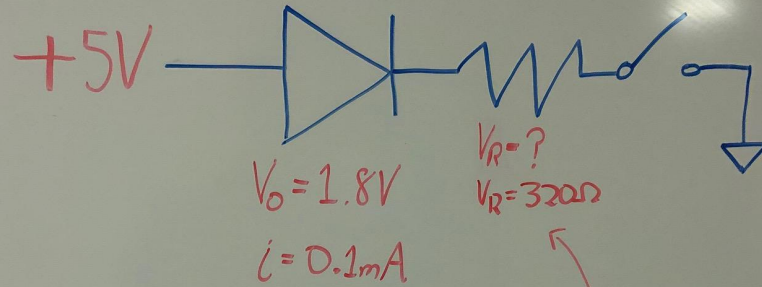 +5V
V₀=1.8V
i=0.1mA
V_R=?
V_R=320Ω